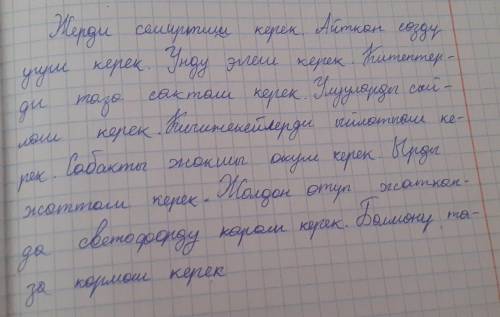 Жерди семиртиш керек. Айткан созду
угуш керек. Унду элеш керек. Китептер-
ди таза сактош керек. Улууларды сый-
лош керек. Кичинекейлерди ыйлатпаш ке-
рек. Сабакты жакшы окуш керек. Ырды
жаттош керек. Жолдон отуп жаткан-
да светофорду кароп керек. Бөлмөну та-
за кармош керек